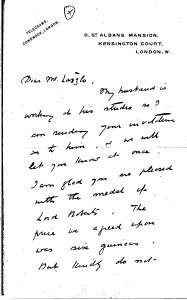 TELEGRAMS,
COMEBACK, LONDON.
6, ST ALBANS MANSION,
KENSINGTON COURT,
LONDON, W.
Dear Mr. Laszlo.
My husband is
working at his studio so I
am sending your invitation
on to him, & we will
let you know at once.
I am glad you are pleased
with the medal of
Lord Roberts. The
price we agreed upon
was six guineas.
But kindly do not